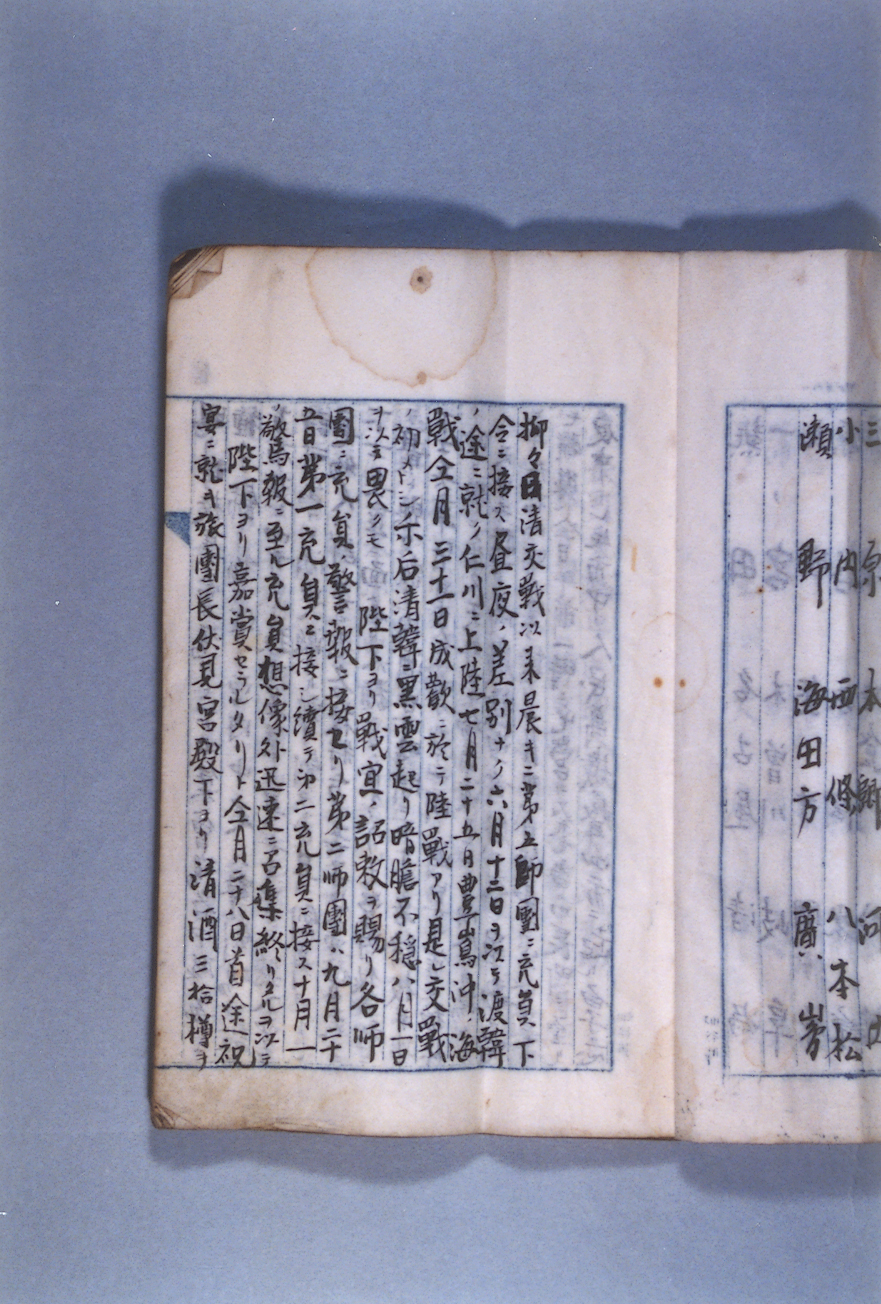 三原本金郷河内
小内西條八本松
瀬野海田方廣嶋
抑々日清交戦以来晨キニ第五師團ニ充員ノ下
令ニ接ス昼夜ノ差別ナク六月十二日ヲ以テ渡韓
ノ途ニ就ク仁川ニ上陸七月二十五日豊嶌沖ノ海
戰仝月三十一日成歡ニ於テ陸戰アリ是レ交戰
ノ初メトシ尓后清韓ニ黒雲起リ暗膽不穏八月一日
ヲ以テ畏クモ陛下ヨリ戰宣ノ詔敕ヲ賜リ各師
團ニ充員ノ警報ニ接セリ第二師團ハ九月二十
五日第一充員ニ接シ續テ第二充員ニ接ス十月一
ノ警報ニ至ル充員想像外迅速ニ召集終リタルヲ以テ
陛下ヨリ嘉賞セラレタリト仝月二十八日首途祝
宴ニ就キ旅團長伏見宮殿下ヨリ清酒三拾樽ヲ